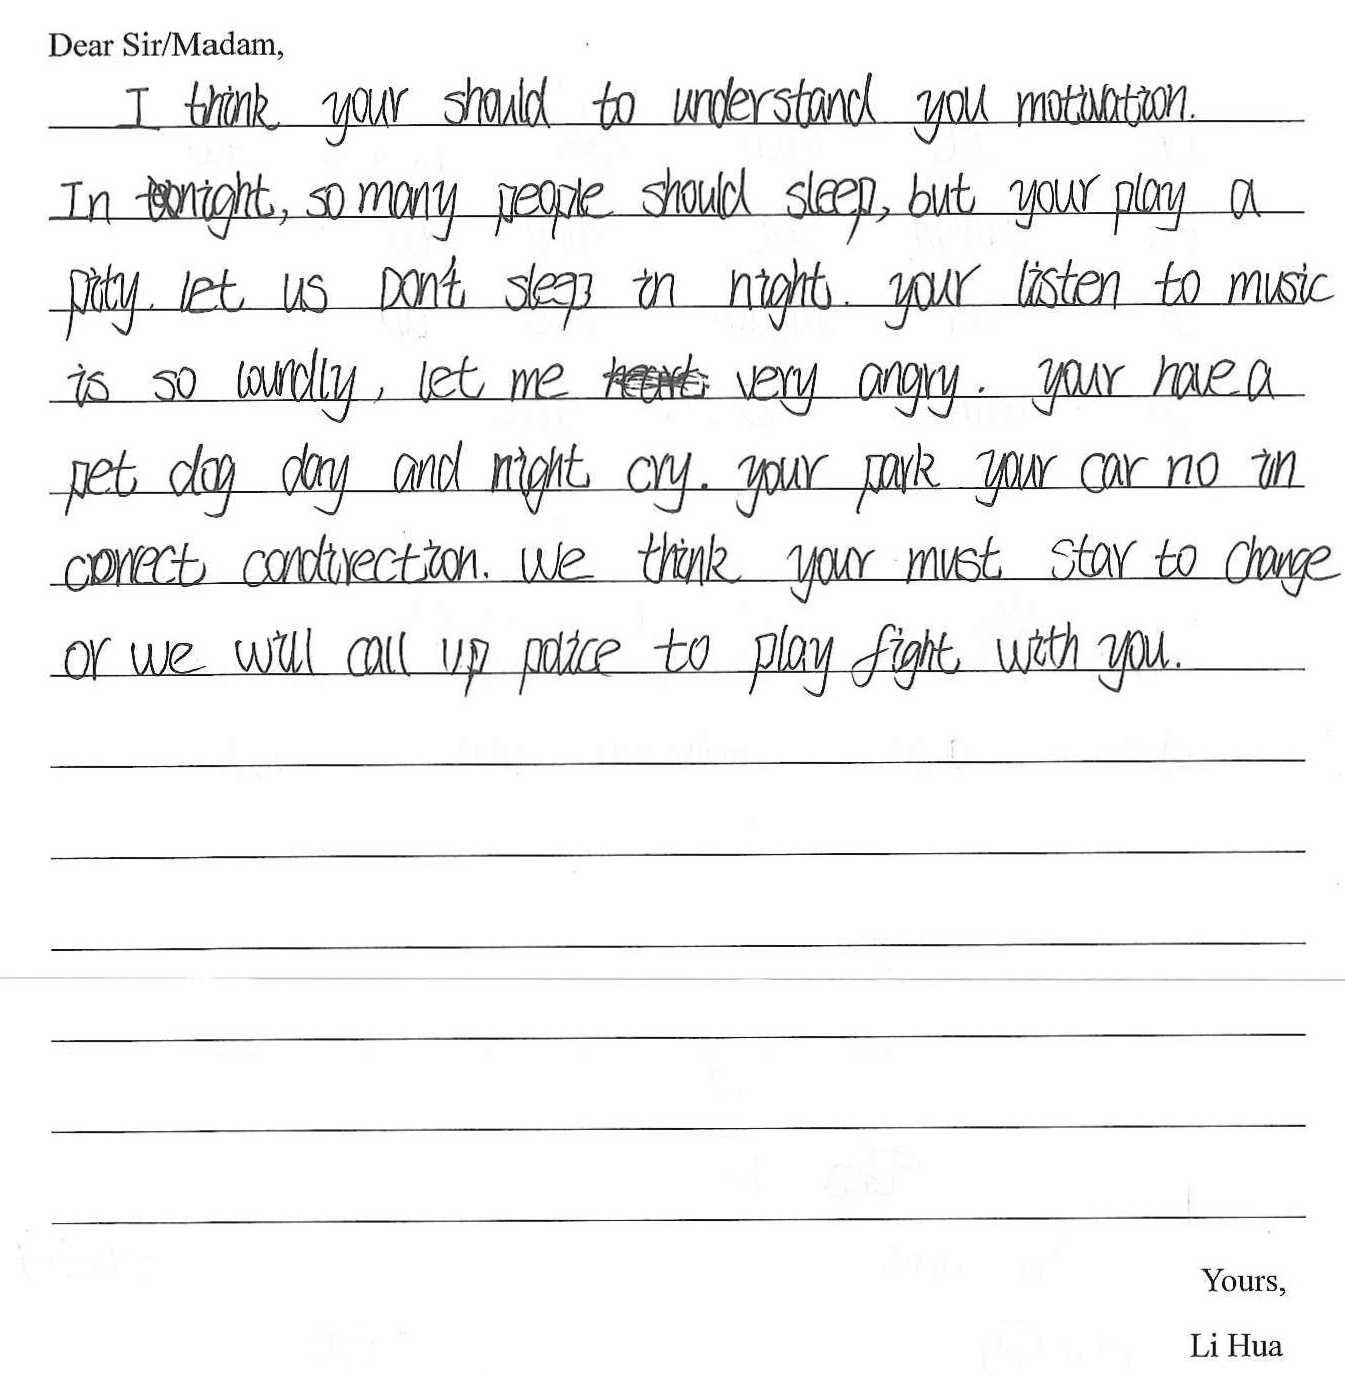 Dear Sir/Madam,
I think your should to understand you motivation.
In night, so many people should sleep, but your play a
pity. let us Don't sleep in night. your listen to music
is so loundly, let me very angry. your have a
pet dog day and night cry. your park your car no in
correct condirection. We think your must star to change
or we will call up police to play fight with you.
Yours,
Li Hua